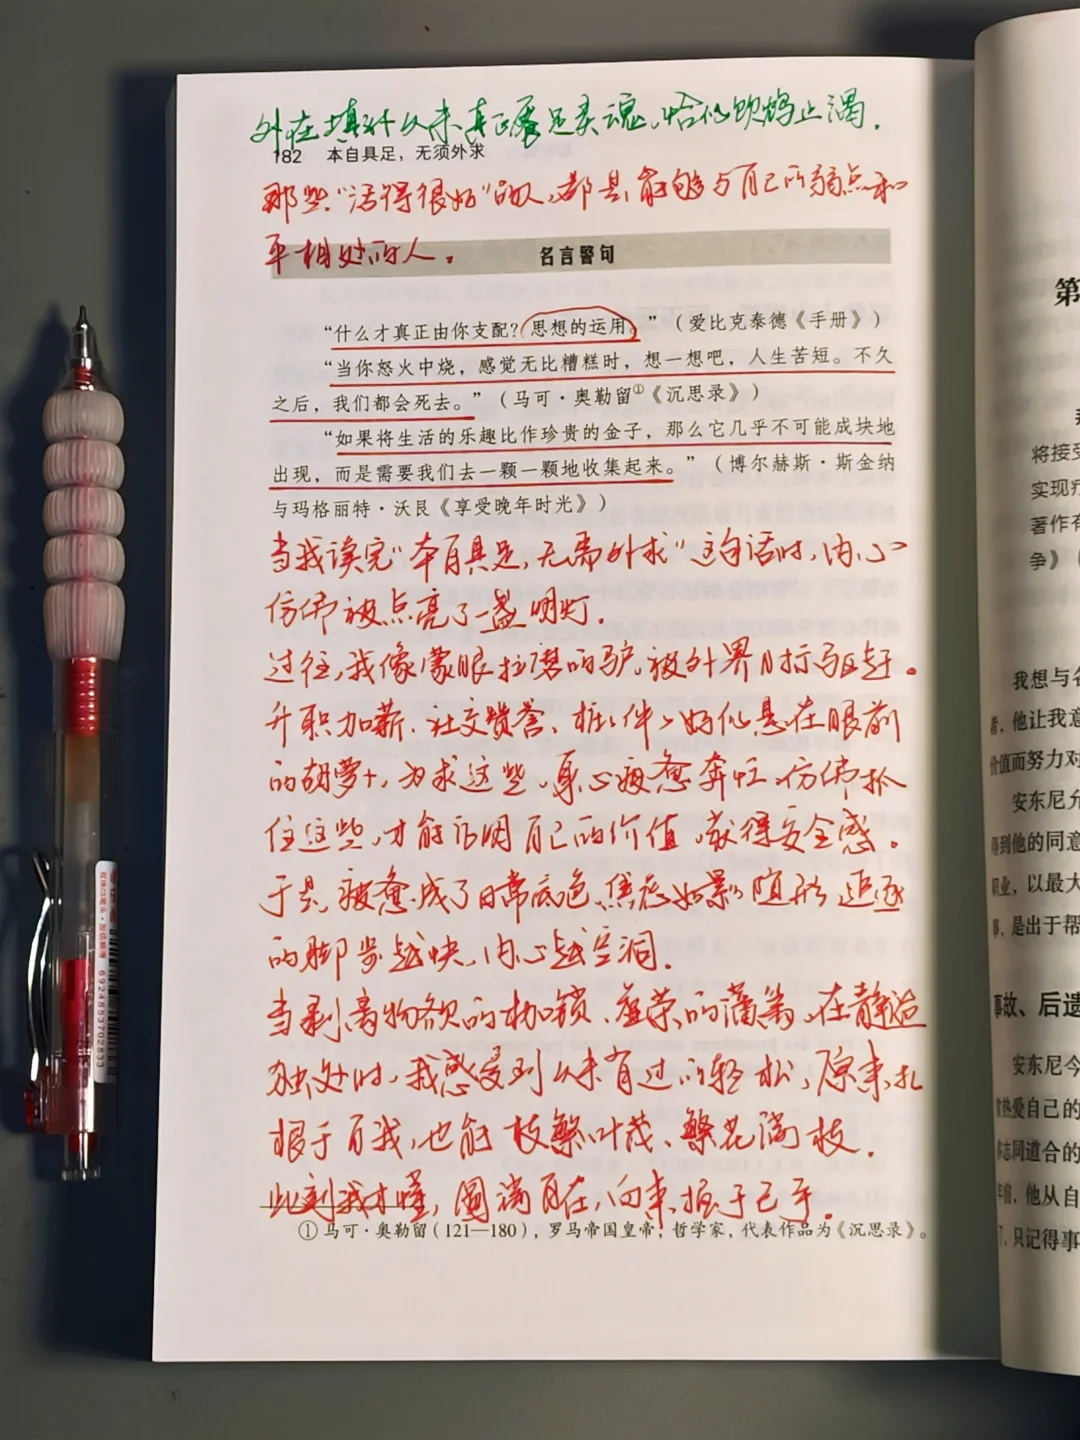 外在填补从未真正餍足灵魂，恰似饮鸩止渴.
182 本自具足，无须外求
那些“活得很好”的人，都是能够与自己的弱点和
平相处的人。
名言警句
“什么才真正由你支配？思想的运用。”（爱比克泰德《手册》）
“当你怒火中烧，感觉无比糟糕时，想一想吧，人生苦短。不久
之后，我们都会死去。”（马可·奥勒留①《沉思录》）
“如果将生活的乐趣比作珍贵的金子，那么它几乎不可能成块地
出现，而是需要我们去一颗一颗地收集起来。”（博尔赫斯·斯金纳
与玛格丽特·沃艮《享受晚年时光》）
当我读完“本自具足，无需外求”这句话时，内心
仿佛被点亮了一盏明灯.
过往，我像蒙眼拉磨的驴，被外界目标驱赶。
升职加薪、社交赞誉、桩桩件件好似悬在眼前
的胡萝卜，为求这些，身心疲惫奔忙，仿佛抓
住这些，才能认明自己的价值，获得安全感。
于是，疲惫成了日常底色，焦虑如影随形，追逐
的脚步越快，内心越空洞.
当剥离物欲的枷锁、虚荣的藩篱，在静谧
独处时，我感受到从未有过的轻松，原来扎
根于自我，也能枝繁叶茂、繁花满枝.
此刻我才懂，圆满自在，向来握于己手.
①马可·奥勒留（121—180），罗马帝国皇帝，哲学家，代表作品为《沉思录》。
第
将接受
实现疗
著作有
争》（
我想与名
者，他让我意
价值而努力对
安东尼允
得到他的同意
职业，以最大
事，是出于帮
事故、后遗
安东尼今
曾热爱自己的
志同道合的
年前，他从自
了，只记得事
6924853702833